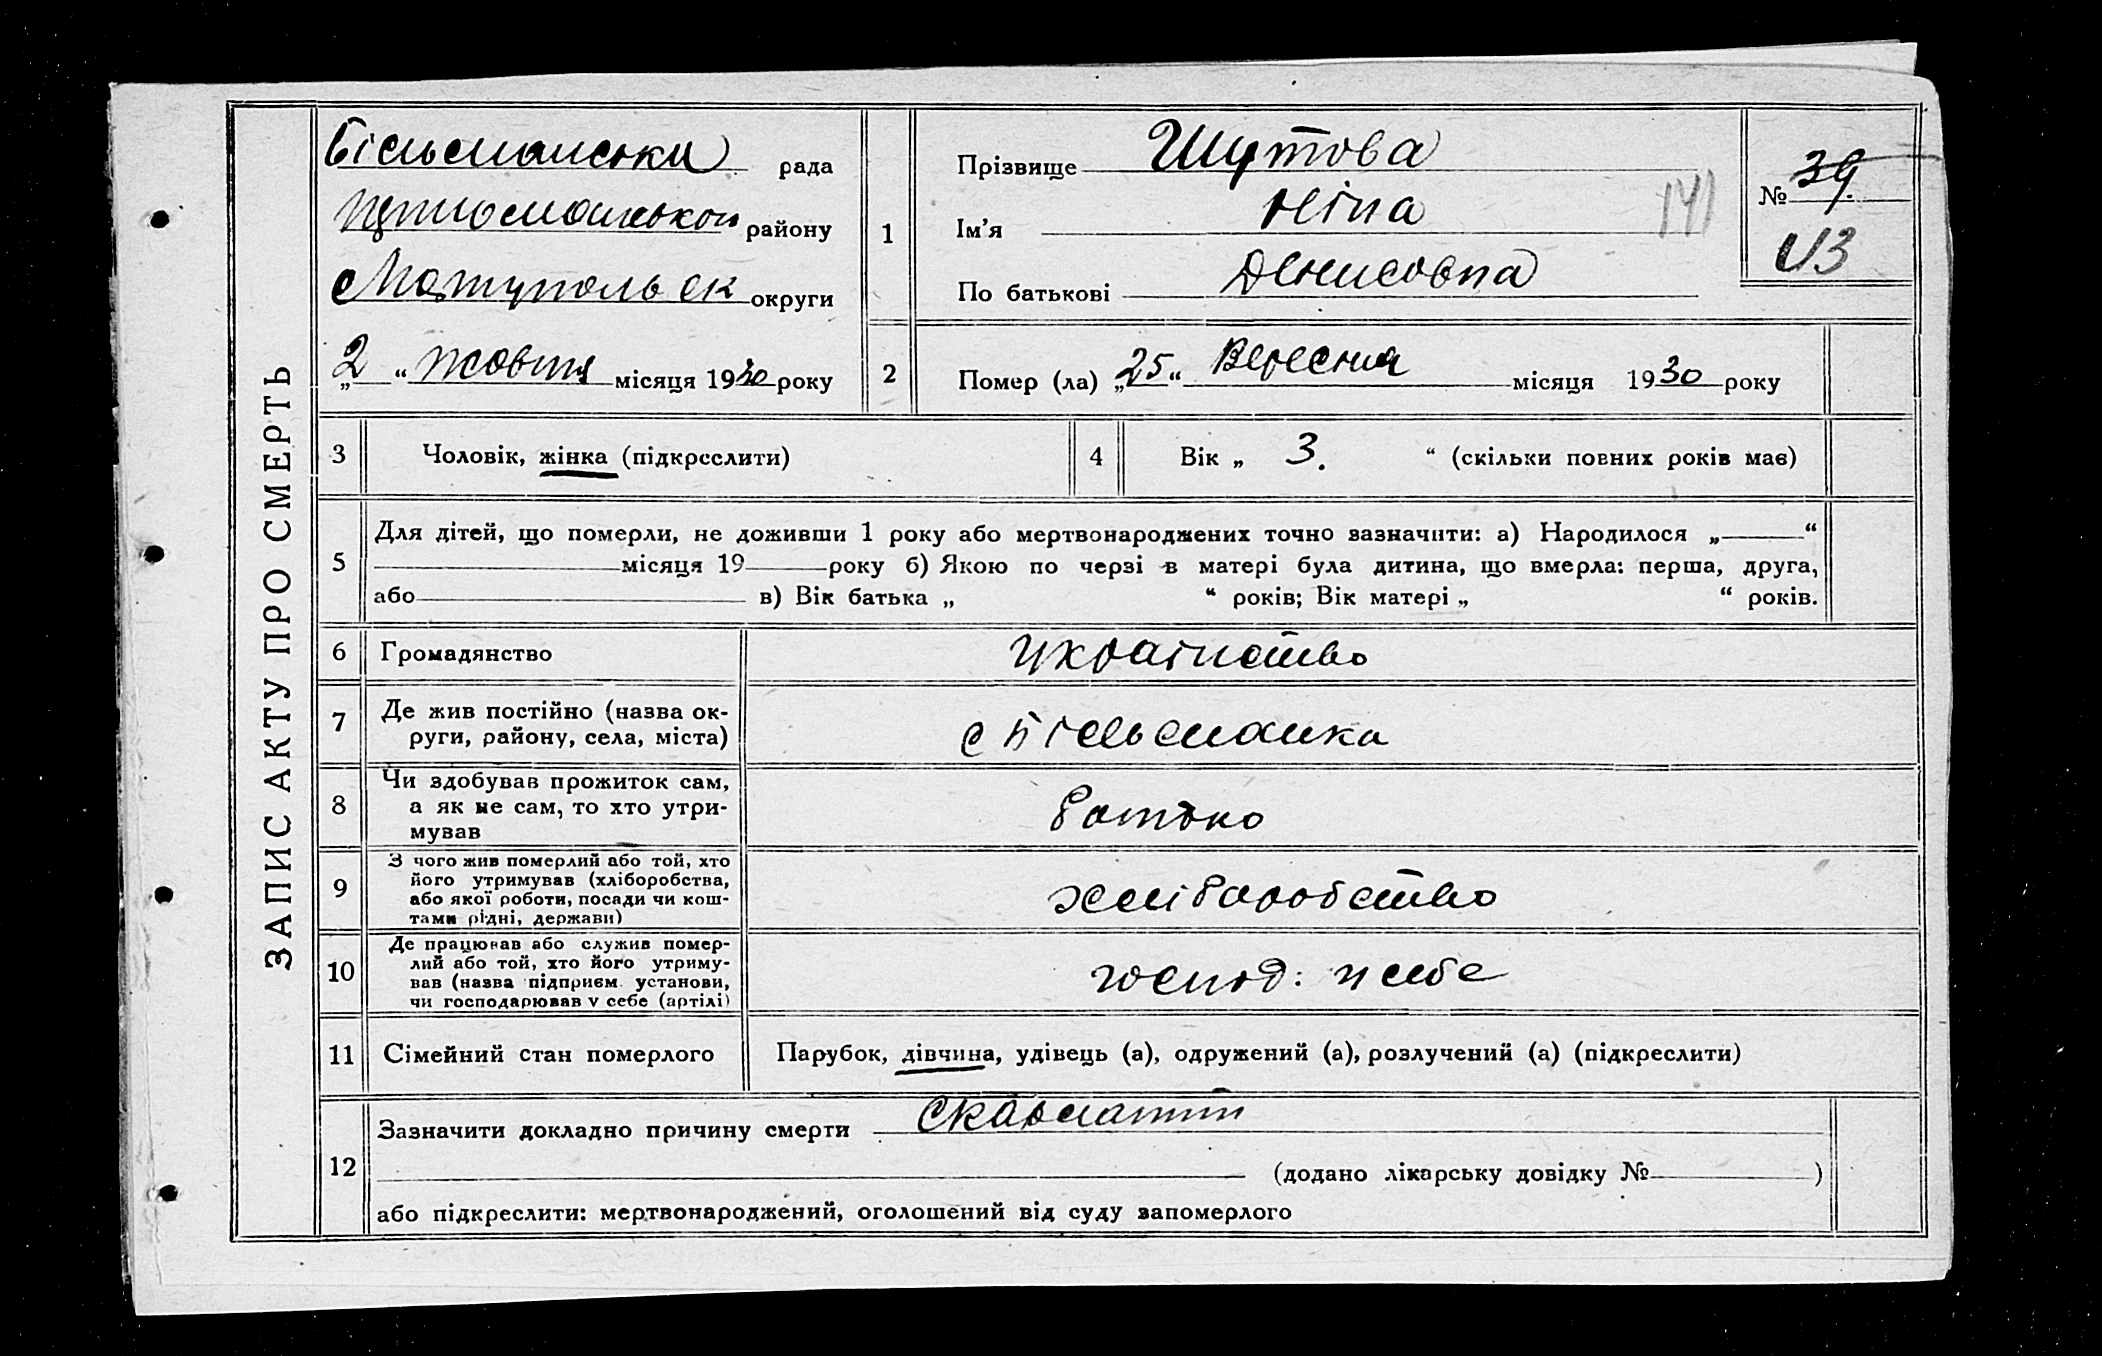 ЗАПИС АКТУ ПРО СМЕРТЬ
Більманська рада
району
Маріупольськ округи
„2“ жовтня місяця 1930 року
1
Прізвище Шутова
Ім’я Ніна
По батькові Денисовна
№ 39
141
2
Помер (ла) „25“ Вересня місяця 1930 року
3
Чоловік, жінка (підкреслити)
4
Вік „ 3. “ (скільки повних років має)
5
Для дітей, що померли, не доживши 1 року або мертвонароджених точно зазначити: а) Народилося „ “
місяця 19 року б) Якою по черзі в матері була дитина, що вмерла: перша, друга,
або в) Вік батька „ “ років; Вік матері „ “ років.
6
Громадянство
Украінство
7
Де жив постійно (назва ок-
руги, району, села, міста)
с Більманка
8
Чи здобував прожиток сам,
а як не сам, то хто утри-
мував
батько
9
З чого жив померлий або той, хто
його утримував (хліборобства,
або якої роботи, посади чи кош-
тами рідні, держави)
хліборобство
10
Де працював або служив помер-
лий або той, хто його утриму-
вав (назва підприєм. установи,
чи господарював у себе (артілі)
господ: у себе
11
Сімейний стан померлого
Парубок, дівчина, удівець (а), одружений (а), розлучений (а) (підкреслити)
12
Зазначити докладно причину смерти Скарлатин
(додано лікарську довідку № )
або підкреслити: мертвонароджений, оголошений від суду запомерлого